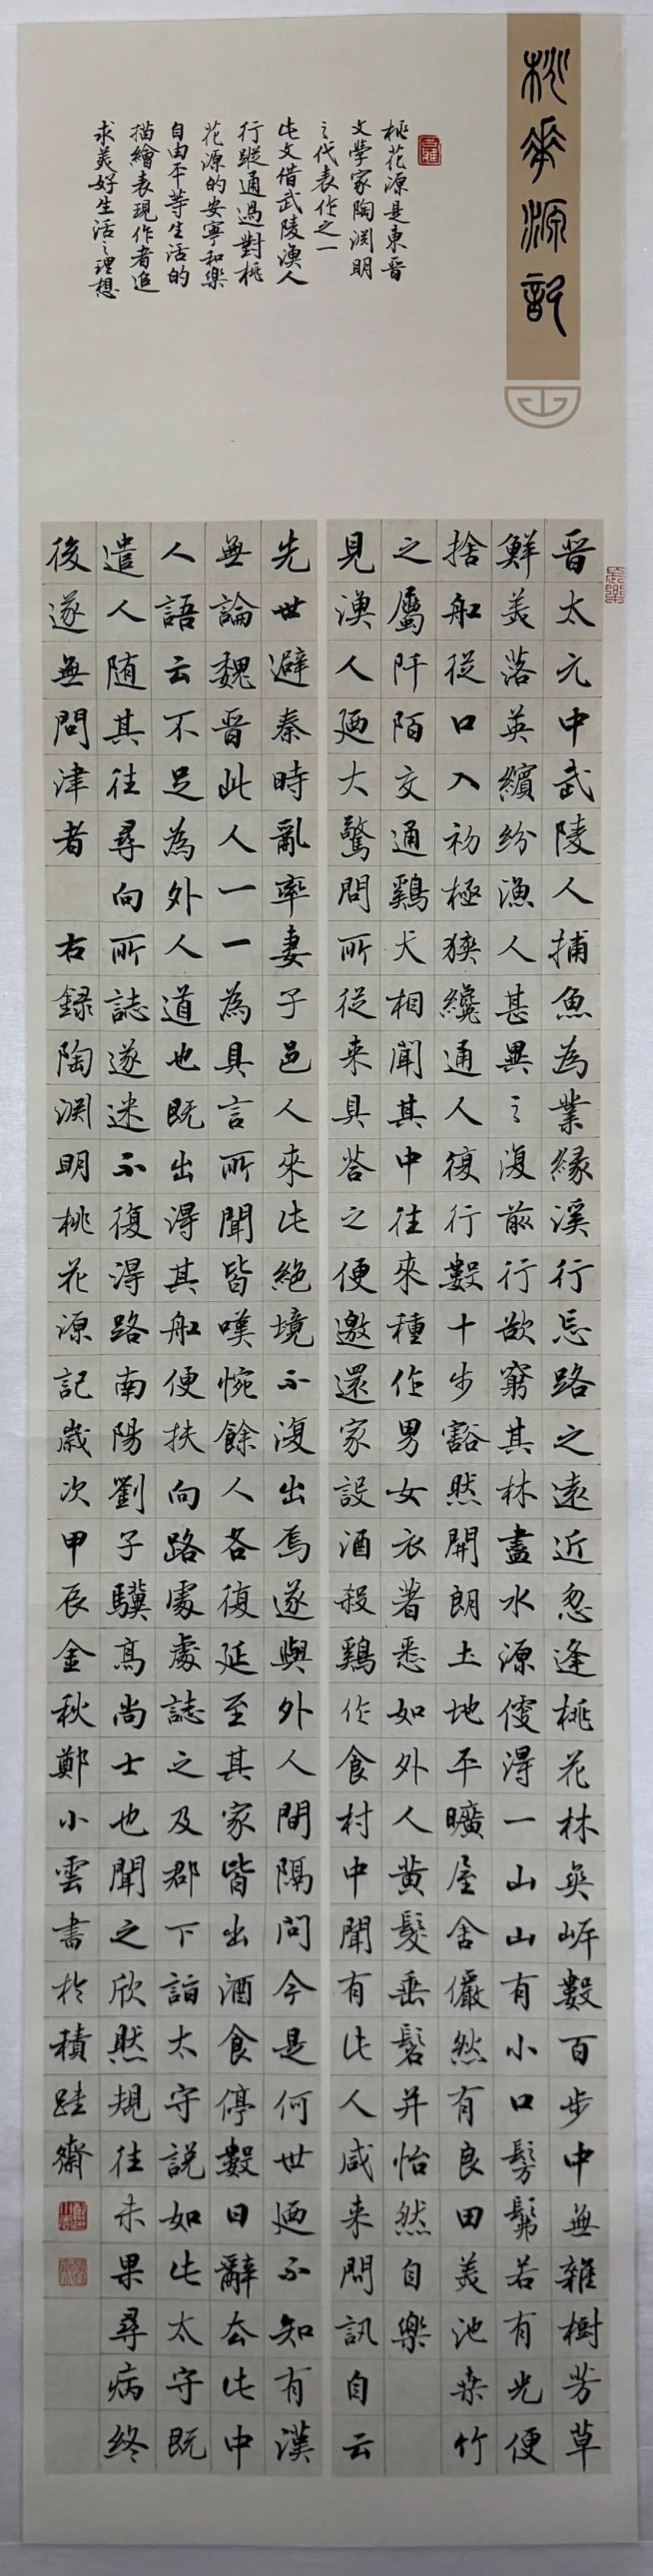 桃華源記
桃花源是東晉
文學家陶淵明
之代表作之一
此文借武陵漁人
行蹤通過對桃
花源的安寧和樂
自由平等生活的
描繪表現作者追
求美好生活之理想
晋太元中武陵人捕魚為業緣溪行忘路之遠近忽逢桃花林夾岸數百步中無雜樹芳草
鮮美落英繽紛漁人甚異之復前行欲窮其林盡水源便得一山山有小口髣髴若有光便
捨船從口入初極狹纔通人復行數十步豁然開朗土地平曠屋舍儼然有良田美池桑竹
之屬阡陌交通鷄犬相聞其中往來種作男女衣著悉如外人黃髮垂髫并怡然自樂
見漁人廼大驚問所從来具答之便邀還家設酒殺鷄作食村中聞有此人咸来問訊自云
先世避秦時亂率妻子邑人來此絕境不復出焉遂與外人間隔問今是何世廼不知有漢
無論魏晋此人一一為具言所聞皆嘆惋餘人各復延至其家皆出酒食停數日辭去此中
人語云不足為外人道也既出得其船便扶向路處處誌之及郡下詣太守說如此太守既
遣人随其往尋向所誌遂迷不復得路南陽劉子驥高尚士也聞之欣然規往未果尋病終
後遂無問津者 右錄陶淵明桃花源記歲次甲辰金秋鄭小雲書於積跬齋